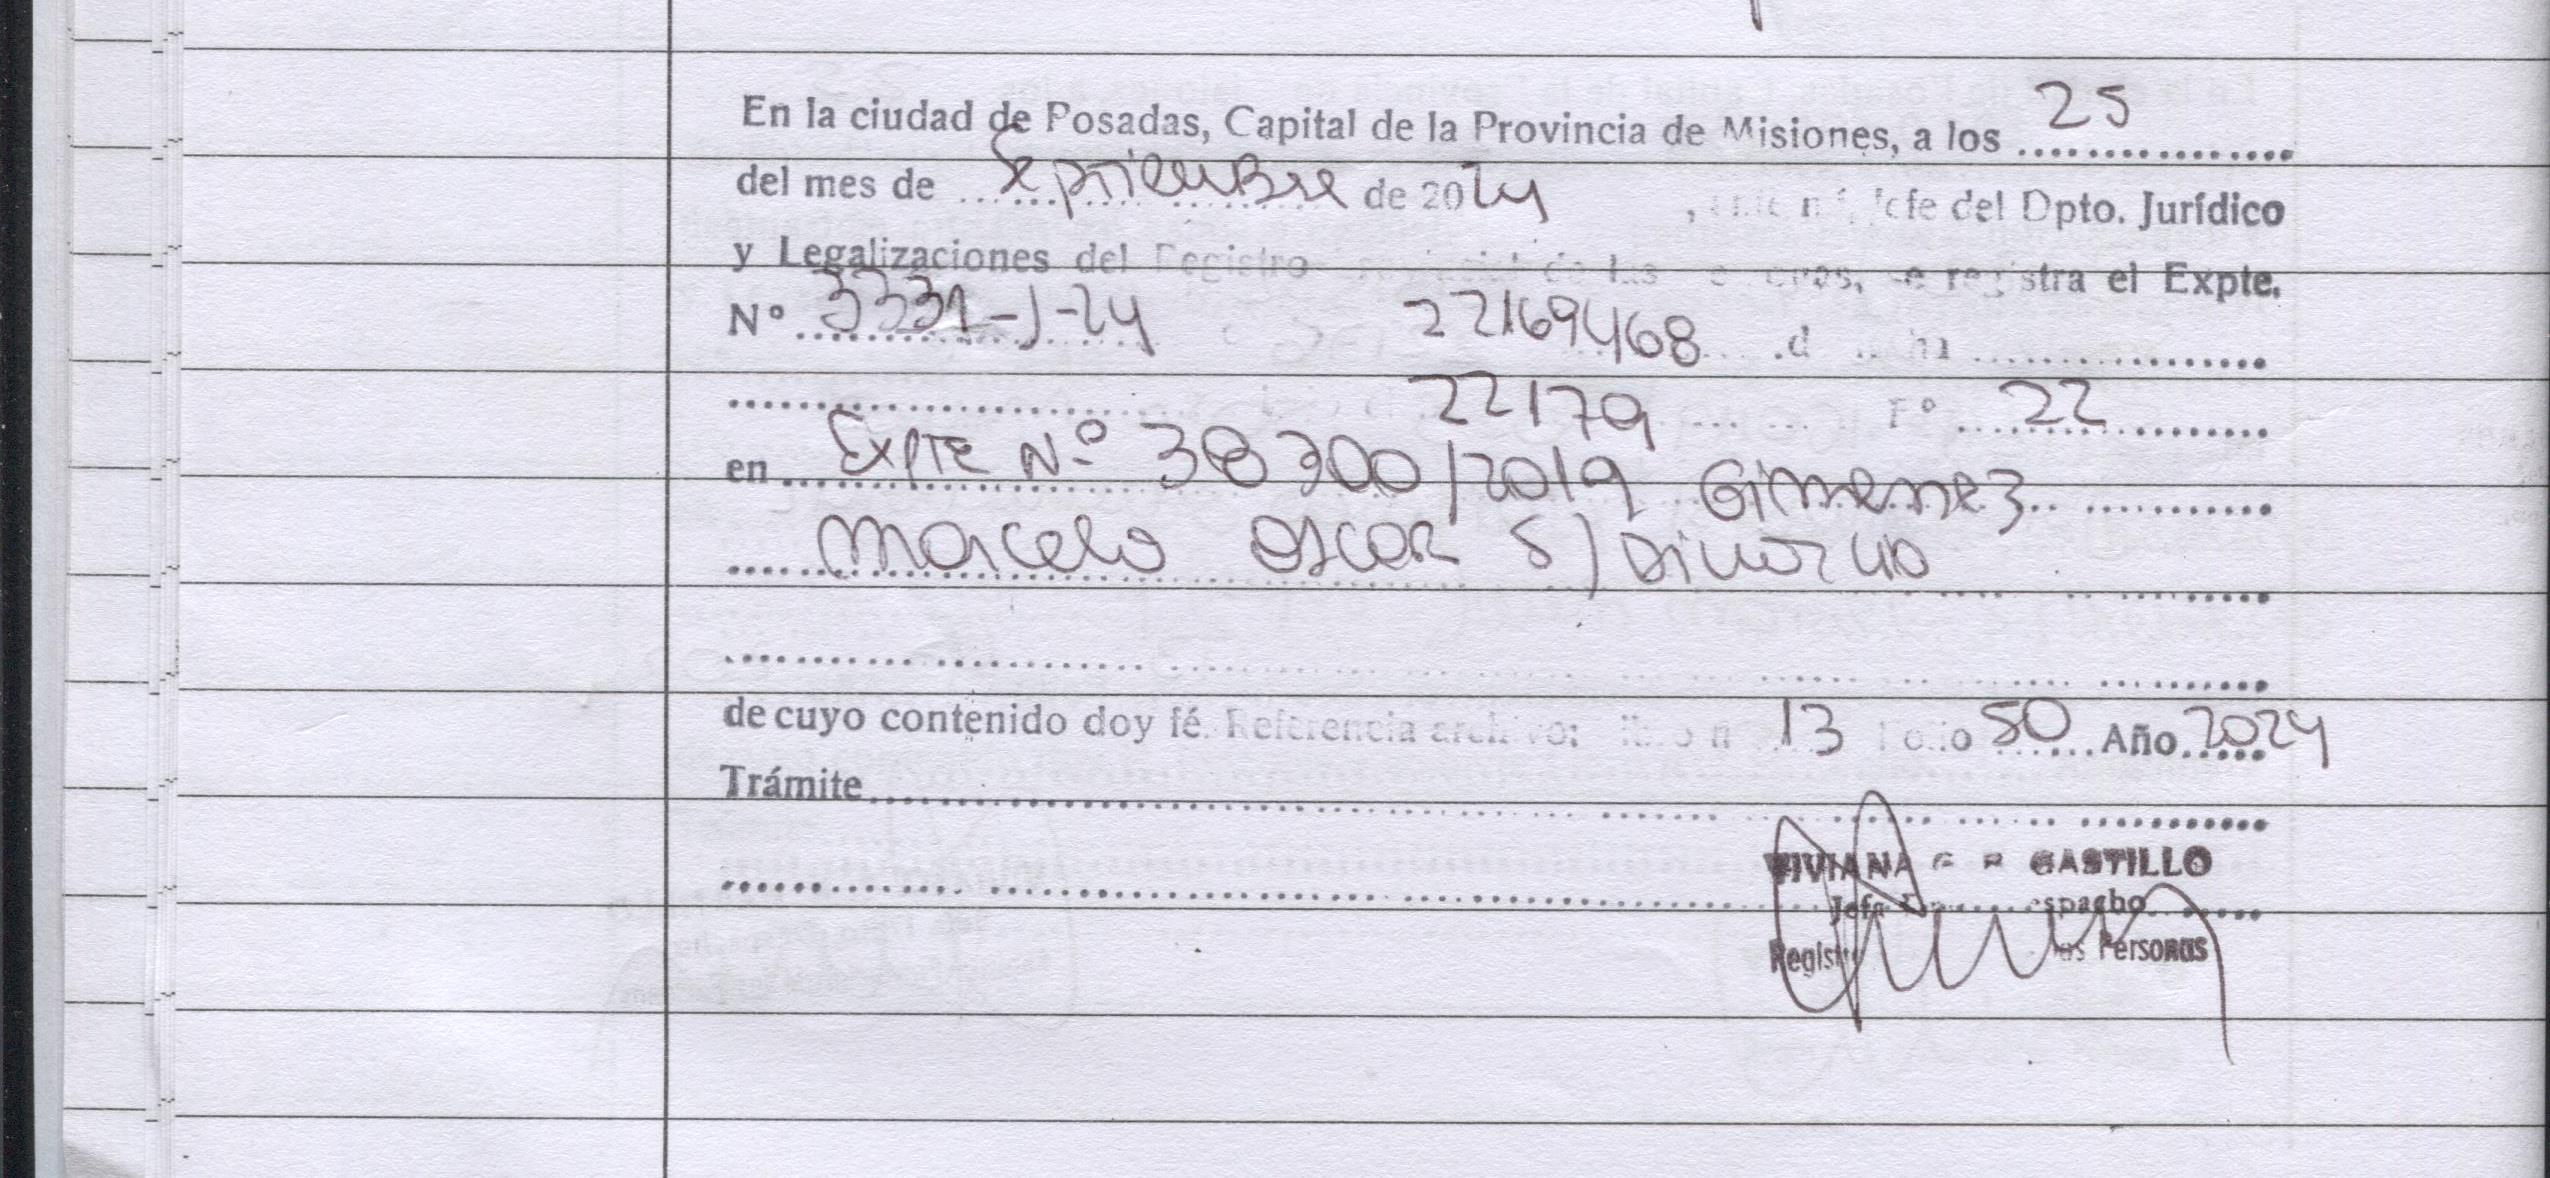 En la ciudad de Posadas, Capital de la Provincia de Misiones, a los 25
del mes de Septiembre de 2024, Jefe del Dpto. Jurídico
y Legalizaciones del Registro de las se registra el Expte.
Nº 3331-J-24 22169468
22179 Fº 22
en Expte Nº 38300/2019 Gimenez
Marcelo Oscar S/ Divorcio
de cuyo contenido doy fé. Referencia archivo: libro nº 13 Folio 50 Año 2024
Trámite
VIVIANA CASTILLO
Jefa Despacho
Registro las Personas